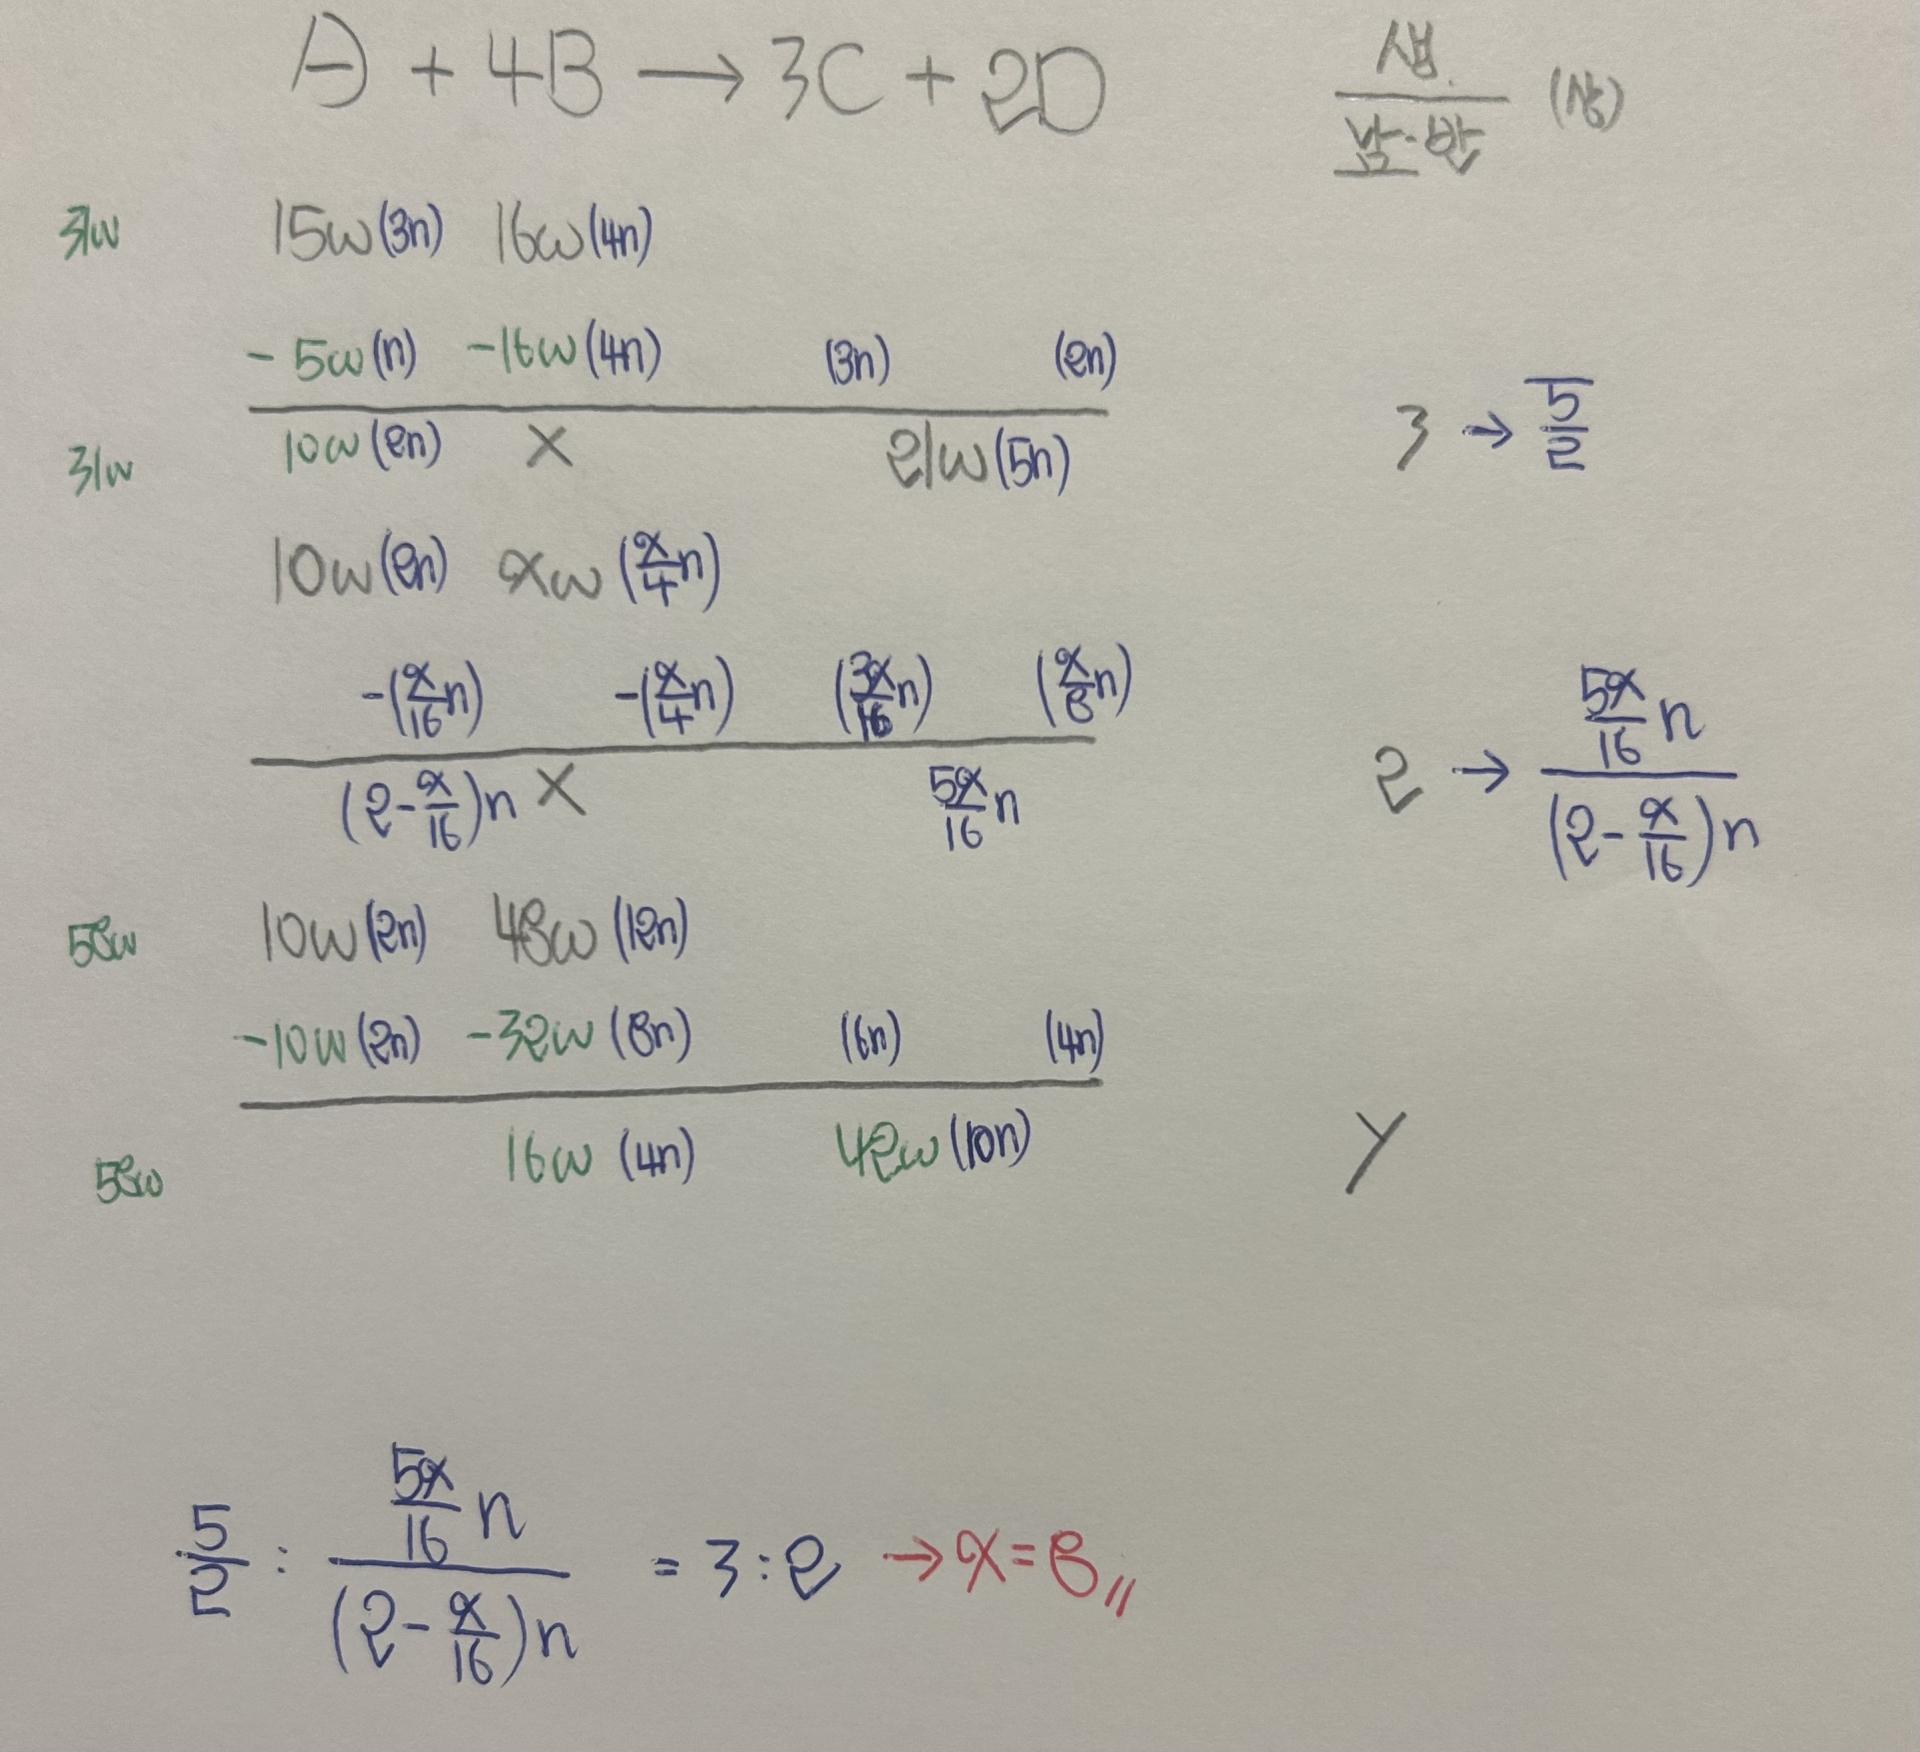 A + 4B → 3C + 2D 생./남·반 (상)
31w 15w(3n) 16w(4n)
-5w(n) -16w(4n) (3n) (2n)
31w 10w(2n) × 21w(5n) 3 → 5/2
10w(2n) xw(x/4 n)
-(x/16 n) -(x/4 n) (3x/16 n) (x/8 n)
(2-x/16)n × 5x/16 n 2 → (5x/16 n)/((2-x/16)n)
58w 10w(2n) 48w(12n)
-10w(2n) -32w(8n) (6n) (4n)
58w 16w(4n) 42w(10n) y
5/2 : (5x/16 n)/((2-x/16)n) = 3:2 → x=8〃